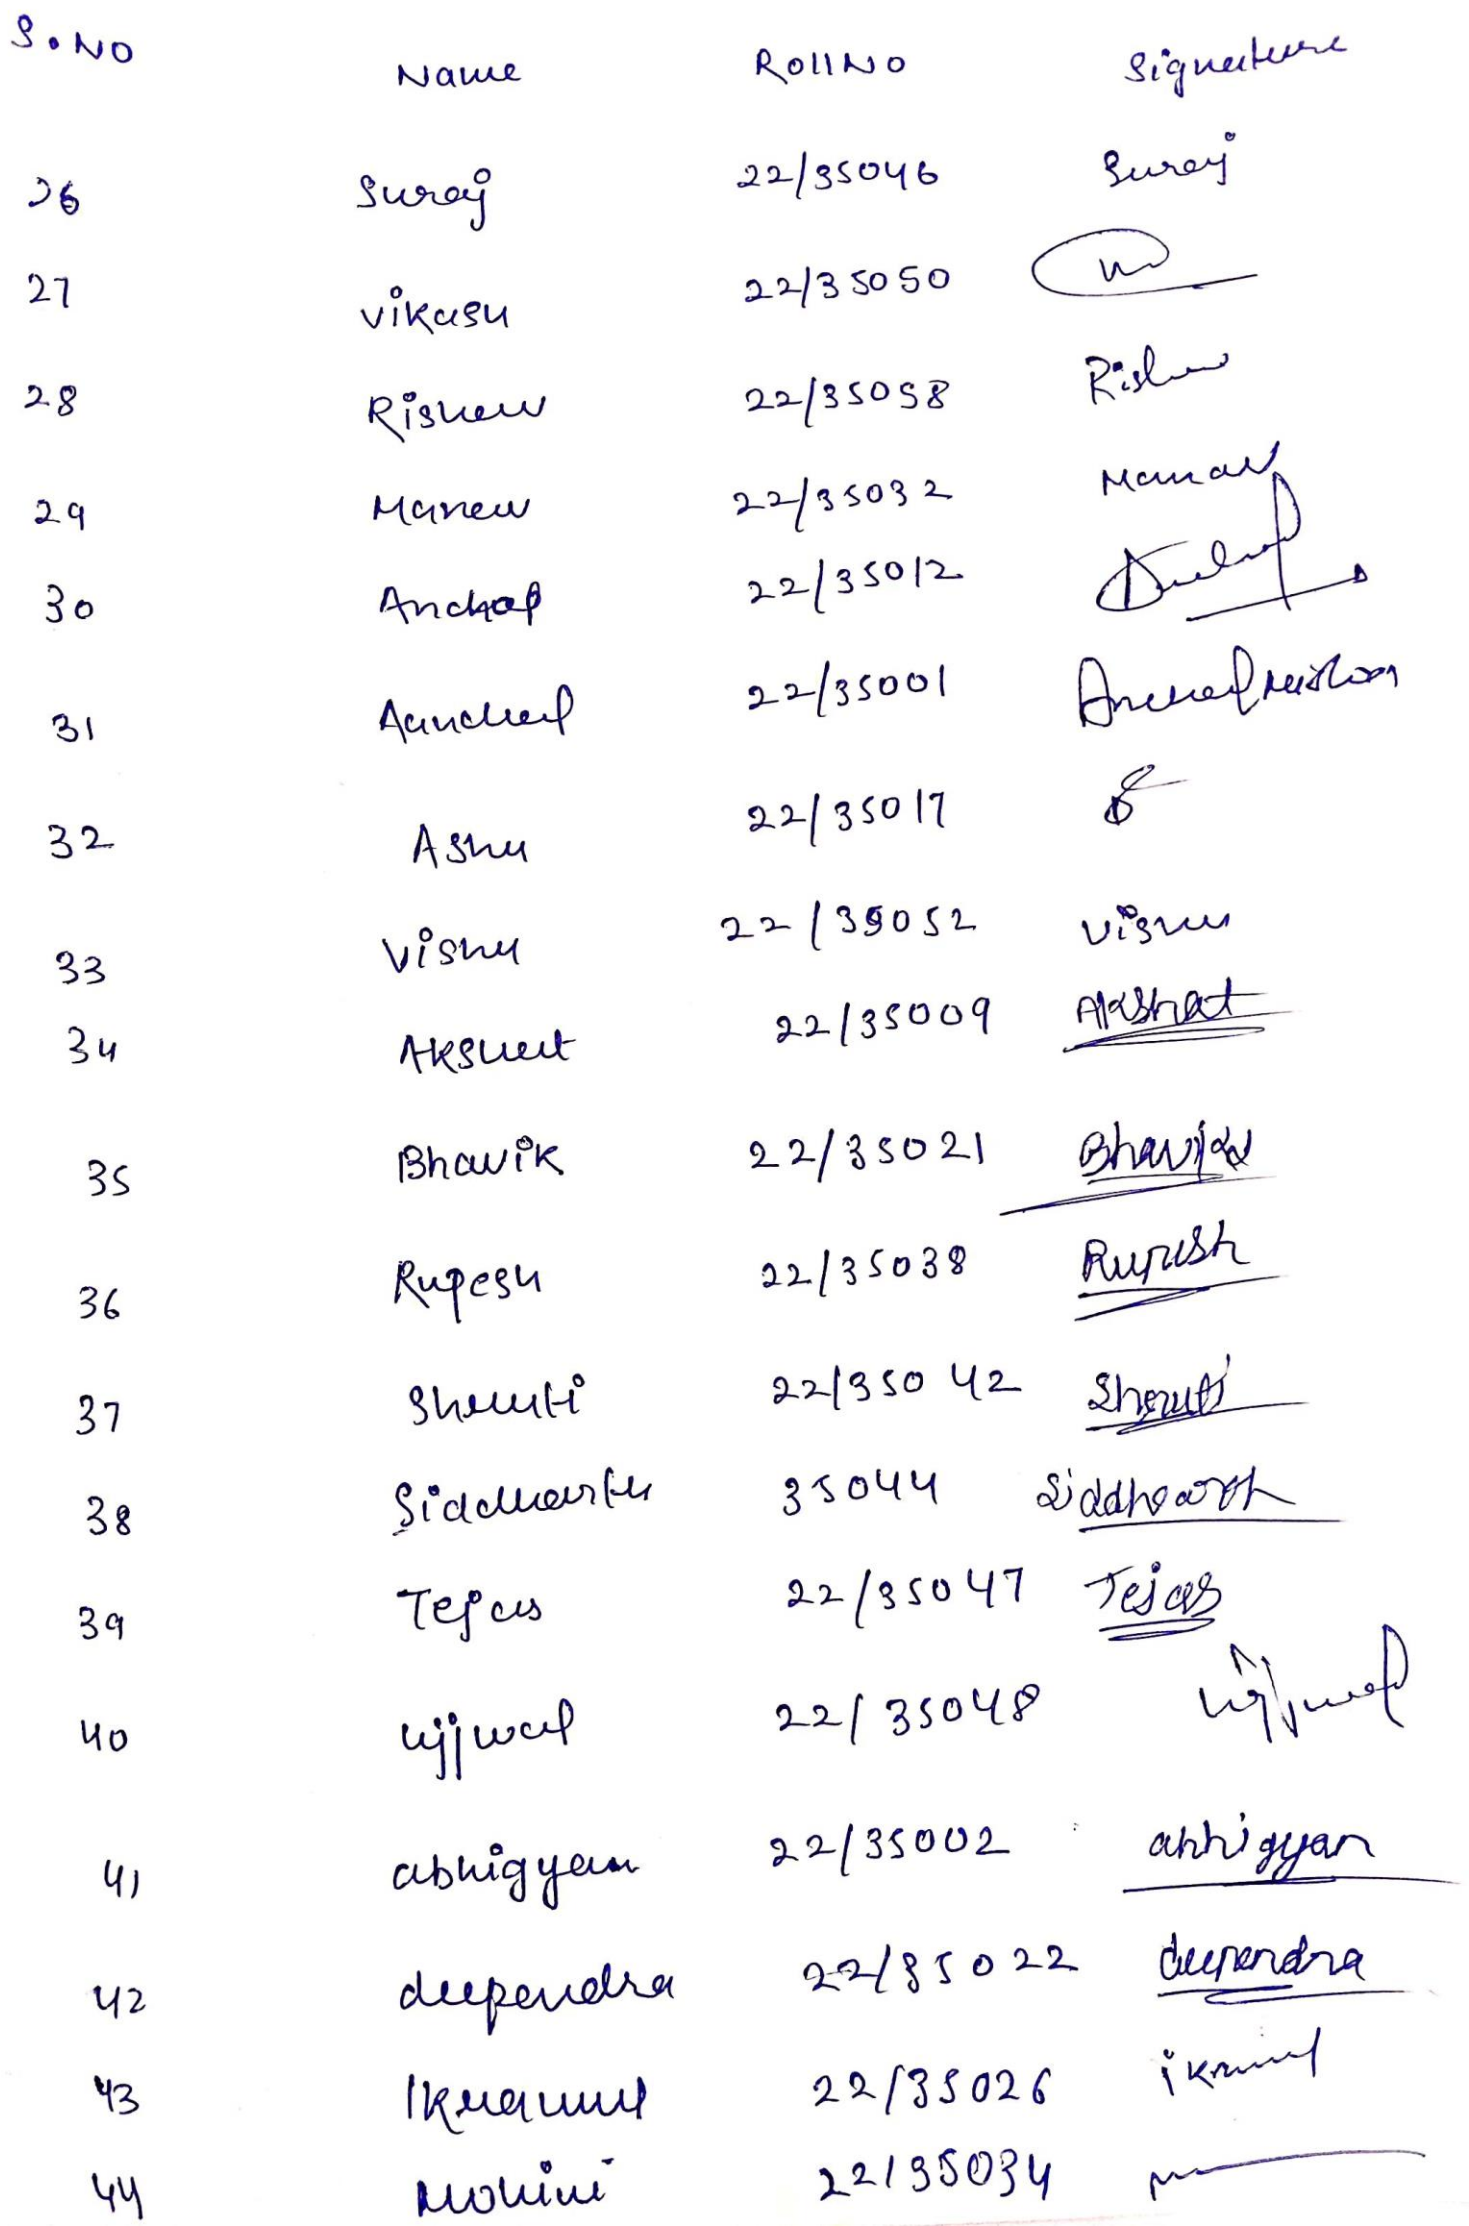 S.NO Name Roll No Signature
26 Suraj 22/35046 Suraj
27 Vikash 22/35050
28 Rishav 22/35058 Rishav
29 Manav 22/35032 Manav
30 Anchal 22/35012
31 Aanchal 22/35001
32 Ashu 22/35017
33 Vishu 22/35052 Vishu
34 Akshat 22/35009 Akshat
35 Bhavik 22/35021 Bhavik
36 Rupesh 22/35038 Rupesh
37 Shruti 22/35042 Shruti
38 Siddharth 35044 Siddharth
39 Tejas 22/35047 Tejas
40 ujjwal 22/35048 ujjwal
41 abhigyan 22/35002 abhigyan
42 deependra 22/35022 deependra
43 22/35026
44 Mohini 22/35034